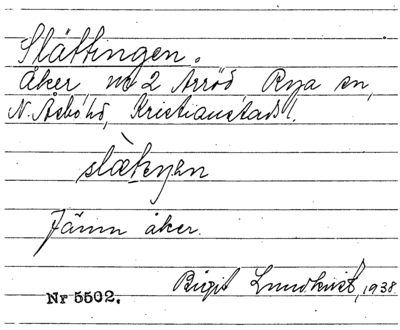 Slättingen.
Åker, nr 2 Arröd, Rya sn,
N. Åsbo hd, Kristianstads l.
Jämn åker.
Birgit Lundkvist, 1938
Nr 5502.